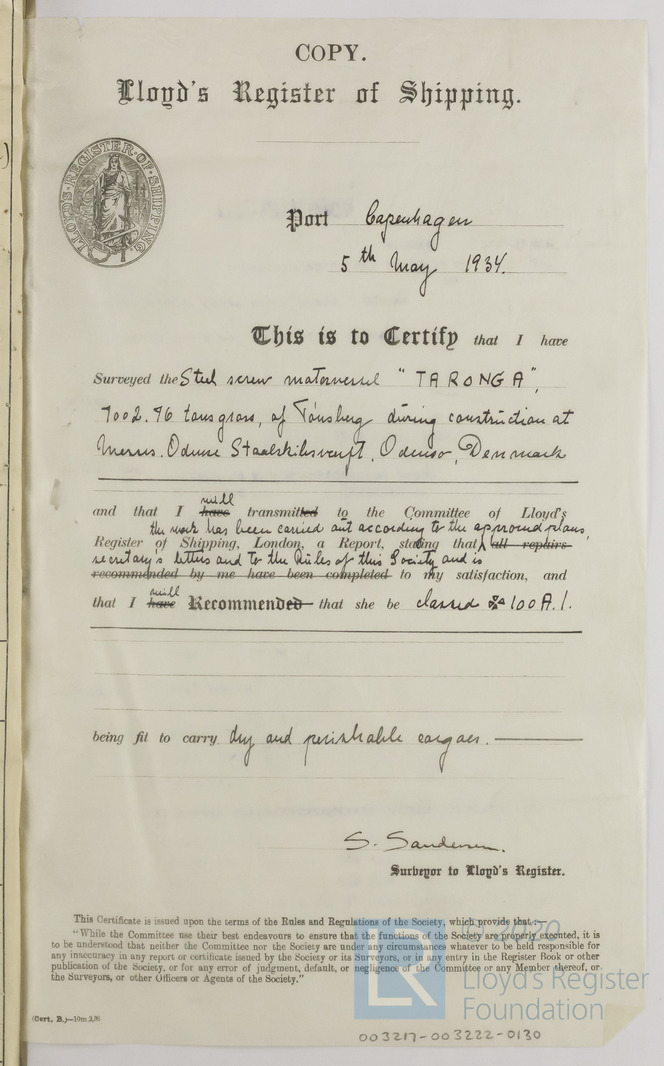 COPY.
Lloyd's Register of Shipping.
LLOYD'S · REGISTER · OF · SHIPPING
Port Copenhagen
5th May 1934.
This is to Certify that I have
Surveyed the Steel screw motorvessel "TARONGA",
7002.76 tons gross, of Tönsberg during construction at
Messrs. Odense Staalskibsværft, Odense, Denmark
will
and that I have transmitted to the Committee of Lloyd's
the work has been carried out according to the approved plans,
Register of Shipping, London, a Report, stating that all repairs
secretary's letters and to the Rules of this Society and is
recommended by me have been completed to my satisfaction, and
will
that I have Recommended that she be classed ✠ 100 A.1.
being fit to carry dry and perishable cargoes.
S. Sandersen.
Surveyor to Lloyd's Register.
This Certificate is issued upon the terms of the Rules and Regulations of the Society, which provide that:—
"While the Committee use their best endeavours to ensure that the functions of the Society are properly executed, it is
to be understood that neither the Committee nor the Society are under any circumstances whatever to be held responsible for
any inaccuracy in any report or certificate issued by the Society or its Surveyors, or in any entry in the Register Book or other
publication of the Society, or for any error of judgment, default, or negligence of the Committee or any Member thereof, or
the Surveyors, or other Officers or Agents of the Society."
© 2020
LR
Lloyd's Register
Foundation
(Cert. B.)—10m
003217-003222-0130